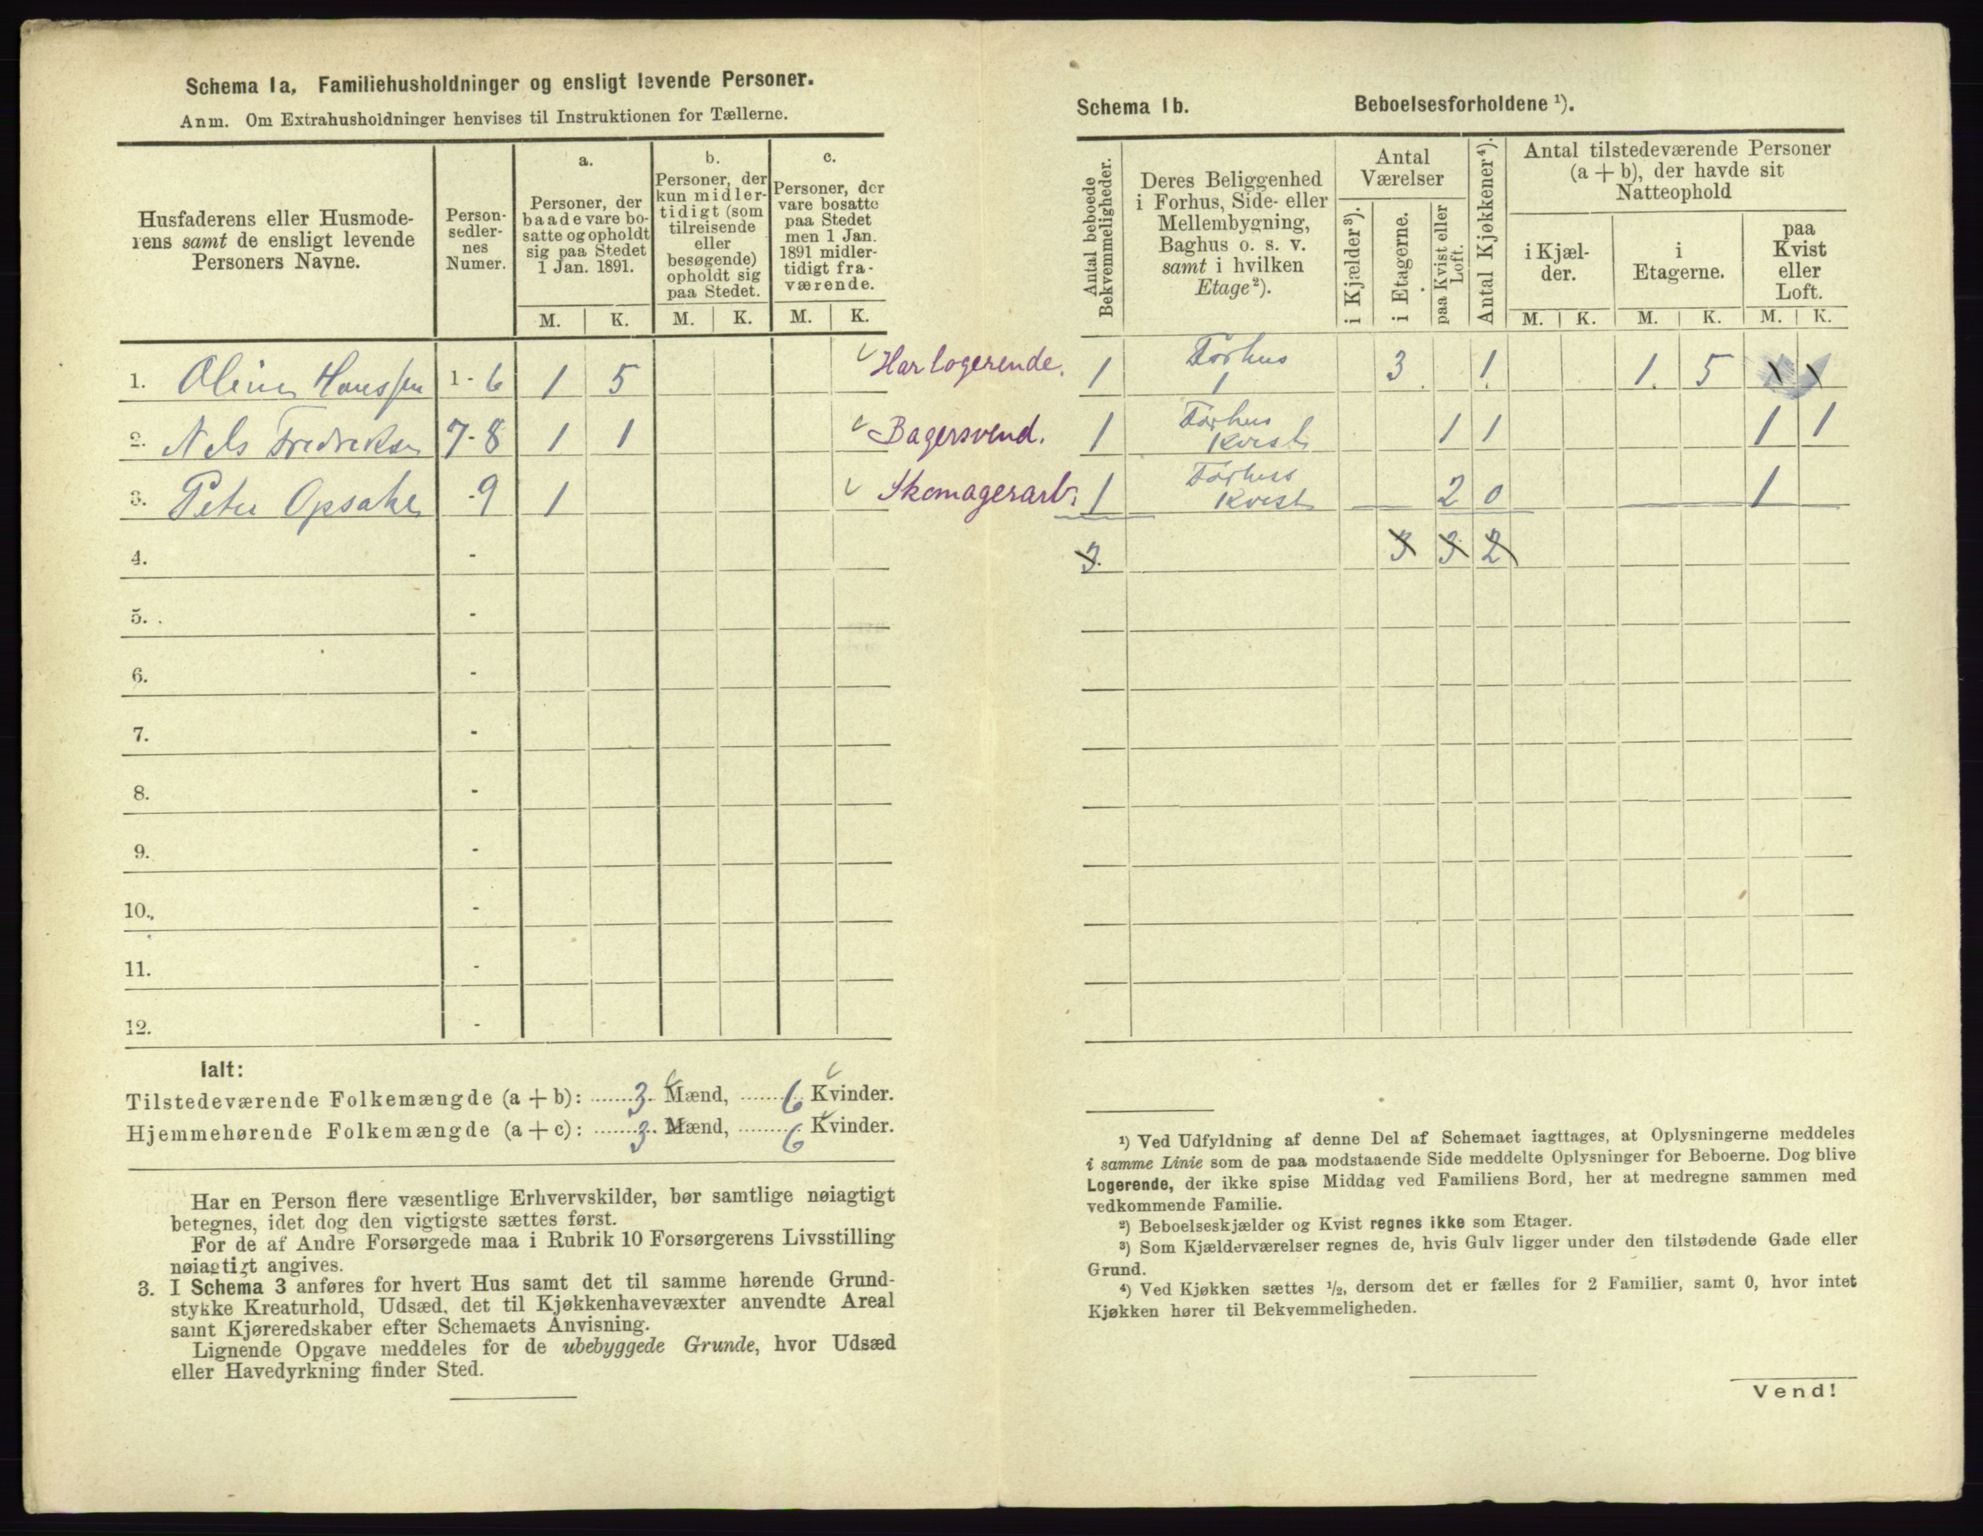 Schema 1a. Familiehusholdninger og ensligt levende Personer.
Anm. Om Extrahusholdninger henvises til Instruktionen for Tællerne.
Husfaderens eller Husmode-
rens samt de ensligt levende
Personers Navne.
Person-
sedler-
nes
Numer.
a.
Personer, der
baade vare bo-
satte og opholdt
sig paa Stedet
1 Jan. 1891.
b.
Personer, der
kun midler-
tidigt (som
tilreisende
eller
besøgende)
opholdt sig
paa Stedet.
c.
Personer, der
vare bosatte
paa Stedet
men 1 Jan.
1891 midler-
tidigt fra-
værende.
M. K. M. K. M. K.
1. Hanssen 1 - 6 1 5 Har logerende.
2. Nels Fredriksen 7 - 8 1 1 Bagersvend.
3. Peter Opsaker - 9 1 Skomagerarb.
4. -
5. -
6. -
7. -
8. -
9. -
10. -
11. -
12. -
Ialt:
Tilstedeværende Folkemængde (a + b): 3 Mænd, 6 Kvinder.
Hjemmehørende Folkemængde (a + c): 3 Mænd, 6 Kvinder.
Har en Person flere væsentlige Erhvervskilder, bør samtlige nøiagtigt
betegnes, idet dog den vigtigste sættes først.
For de af Andre Forsørgede maa i Rubrik 10 Forsørgerens Livsstilling
nøiagtigt angives.
3. I Schema 3 anføres for hvert Hus samt det til samme hørende Grund-
stykke Kreaturhold, Udsæd, det til Kjøkkenhavevæxter anvendte Areal
samt Kjøreredskaber efter Schemaets Anvisning.
Lignende Opgave meddeles for de ubebyggede Grunde, hvor Udsæd
eller Havedyrkning finder Sted.
Schema 1b. Beboelsesforholdene ¹).
Antal beboede
Bekvemmeligheder.
Deres Beliggenhed
i Forhus, Side- eller
Mellembygning,
Baghus o. s. v.
samt i hvilken
Etage²).
Antal
Værelser
i Kjælder³).
i Etagerne.
paa Kvist eller
Loft.
Antal Kjøkkener⁴).
Antal tilstedeværende Personer
(a + b), der havde sit
Natteophold
i Kjæl-
der.
i
Etagerne.
paa
Kvist
eller
Loft.
M. K. M. K. M. K.
1 Forhus 1 3 1 1 5 x x
1 Forhus Kvist 1 1 1 1
1 Forhus Kvist 2 0 1
3 3 3 2
¹) Ved Udfyldning af denne Del af Schemaet iagttages, at Oplysningerne meddeles
i samme Linie som de paa modstaaende Side meddelte Oplysninger for Beboerne. Dog blive
Logerende, der ikke spise Middag ved Familiens Bord, her at medregne sammen med
vedkommende Familie.
²) Beboelseskjælder og Kvist regnes ikke som Etager.
³) Som Kjælderværelser regnes de, hvis Gulv ligger under den tilstødende Gade eller
Grund.
⁴) Ved Kjøkken sættes ½, dersom det er fælles for 2 Familier, samt 0, hvor intet
Kjøkken hører til Bekvemmeligheden.
Vend!